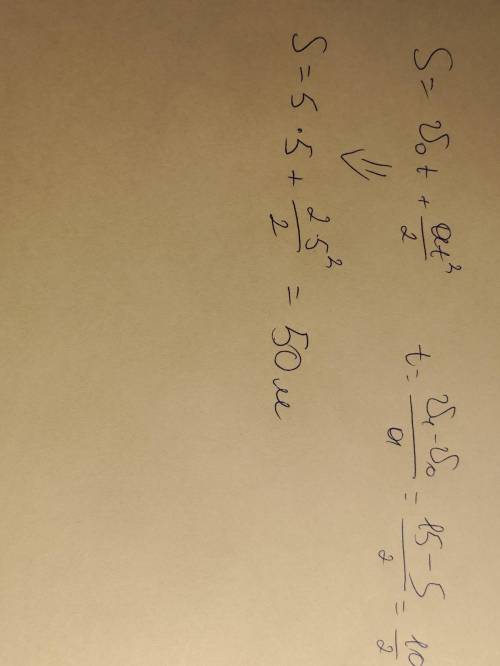 S = v₀t + at²/2    t = (v₁ - v₀)/a = (15 - 5)/2 = 10/2
⇓
S = 5 · 5 + (2·5²)/2 = 50 м